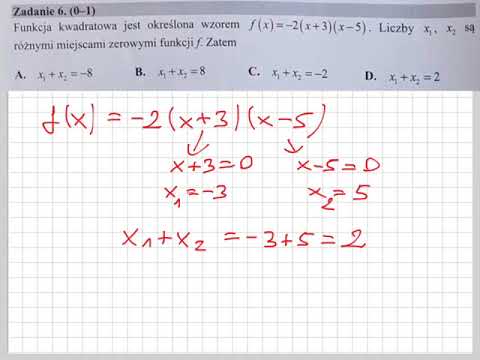 Zadanie 6. (0–1)
Funkcja kwadratowa jest określona wzorem f(x)=−2(x+3)(x−5). Liczby x₁, x₂ są
różnymi miejscami zerowymi funkcji f. Zatem
A. x₁+x₂=−8 B. x₁+x₂=8 C. x₁+x₂=−2 D. x₁+x₂=2
f(x) = −2(x+3)(x−5)
x+3=0 x−5=0
x₁=−3 x₂=5
x₁+x₂ = −3+5=2